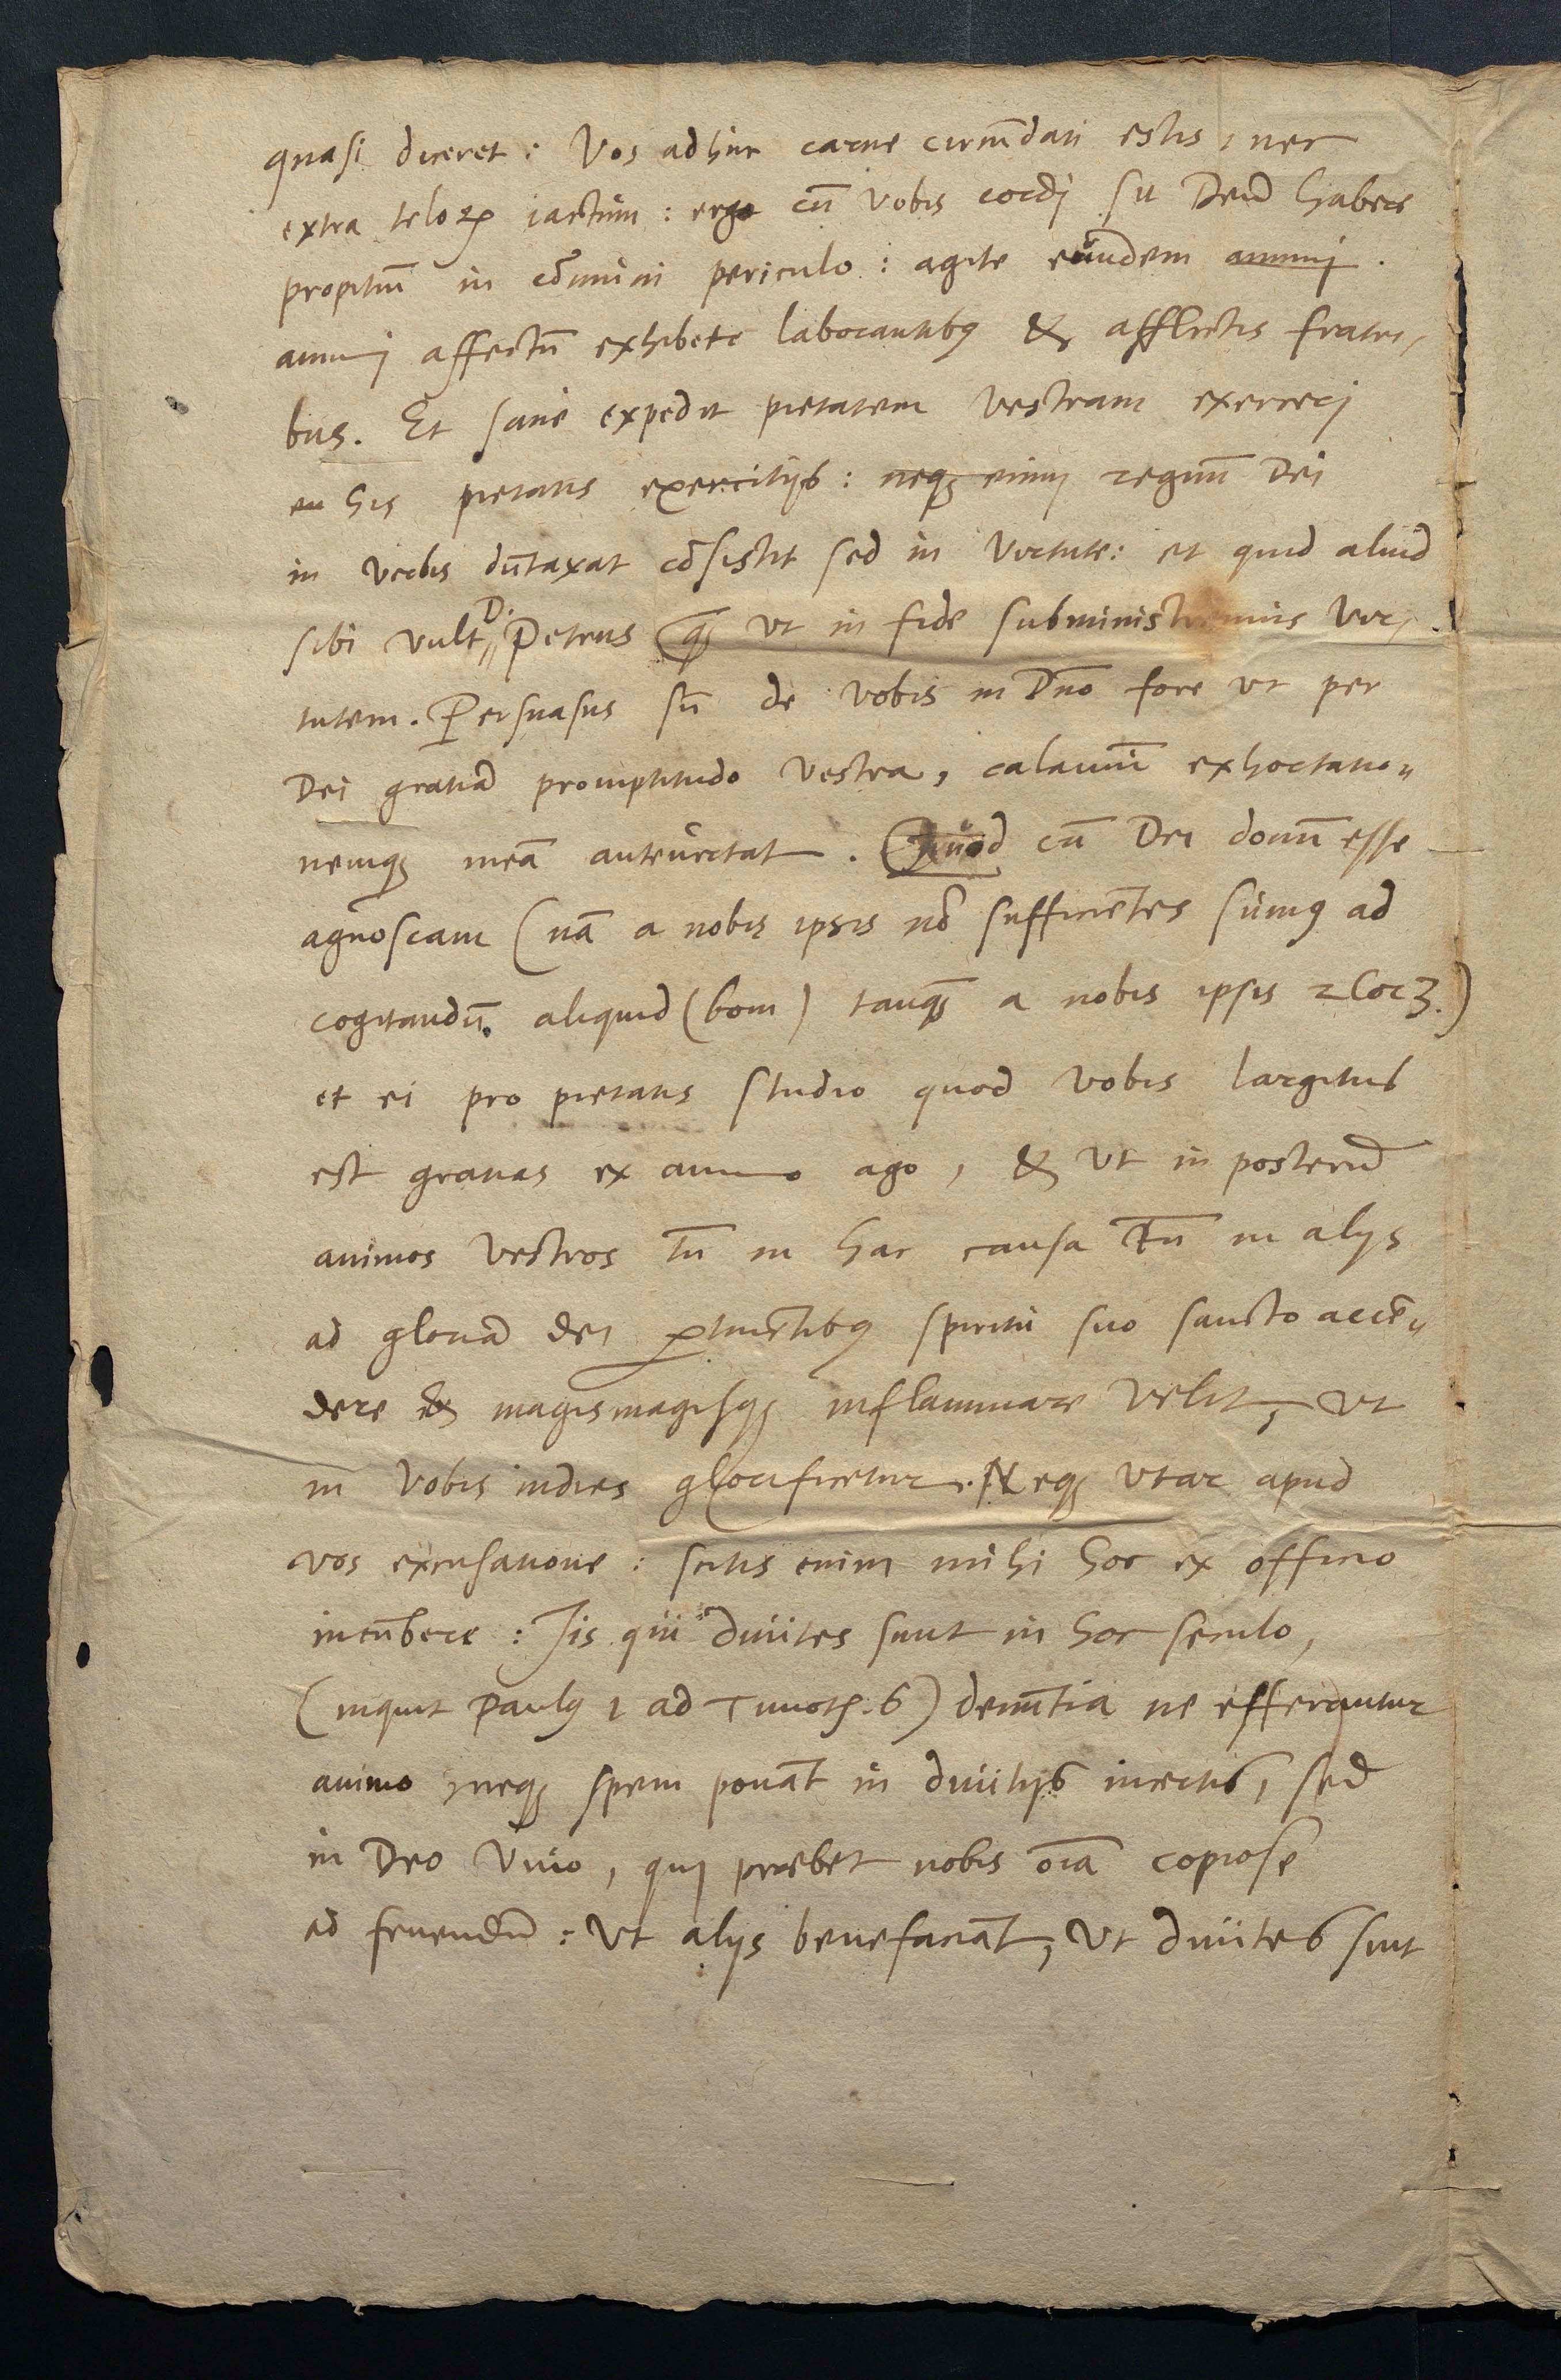 quasi diceret: Vos adhuc carne circũdati estis, nec
extra teloꝝ iactum: ergo cũ vobis cordj sit Deũ habere
propitiũ in cõmuni periculo: agite eundem animj.
animj affectũ exhibete laborantibꝰ & afflictis fratri,
bus. Et sane expedit pietatem vestram exercerj
his pietatis exercitijs: neqꝫ enim regnũ Dei
in verbis dũtaxat cõsistit sed in virtute: et quid aliud
sibi vult D. Petrus ꝙ̃ ut in fide subministremus vir,
tutem. Persuasus sũ de vobis in Dño fore ut per
Dei gratiã promptitudo vestra, calamũ exhortatio„
nemqꝫ meã antevertat. Quod cũ Dei donũ esse
agnoscam (nã a nobis ipsis nõ sufficiẽtes sumꝰ ad
cogitandũ aliquid (boni) tanqꝫ a nobis ipsis 2 Cor 3.)
et ei pro pietatis studio quod vobis largitus
est gratias ex animo ago, & ut in posterũ
animos vestros tũ in hac causa tũ in alijs
ad gloriã dei ꝑtinẽtibꝰ spiritu suo sancto accẽ„
dere & magismagisqꝫ inflammare velit, ut
in vobis indies glorificetur. Neqꝫ utar apud
vos excusatione: scitis enim mihi hoc ex officio
incũbere: Jis qui divites sunt in hoc seculo,
(inquit Paulꝰ 1 ad Timoth. 6) denũtia ne efferantur
animo, neqꝫ spem ponãt in divitijs incertis, sed
in Deo vivo, qui præbet nobis oĩa copiose
ad fruendũ: Ut alijs benefaciãt, ut divites sint